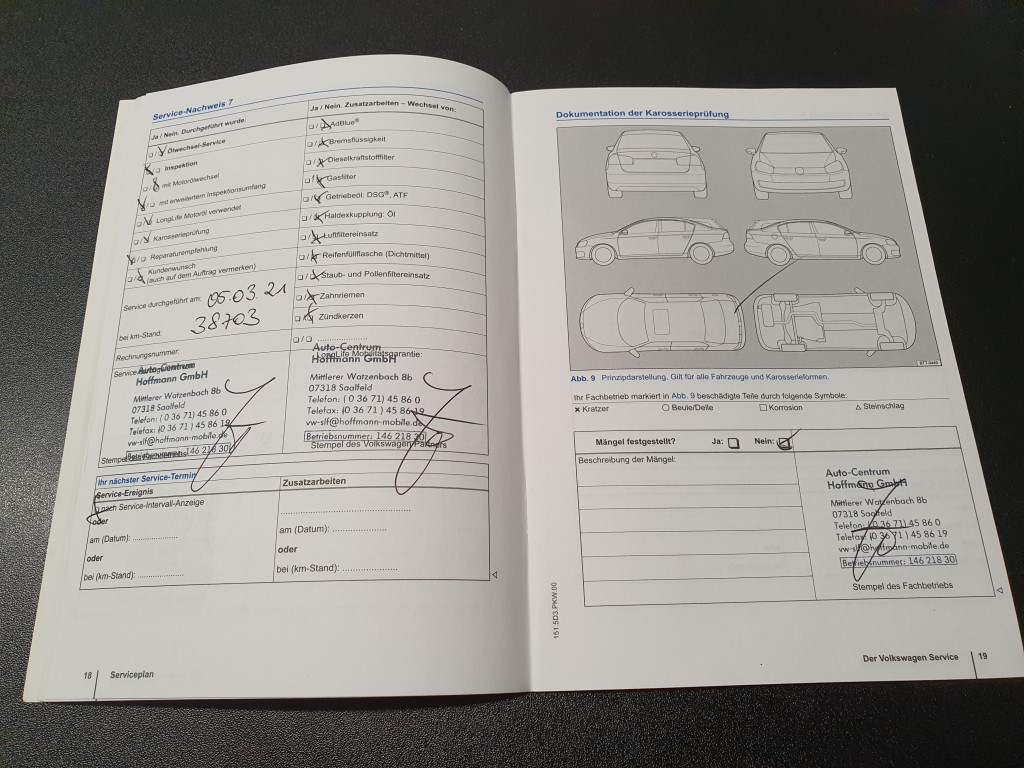 Service-Nachweis 7
Ja / Nein. Durchgeführt wurde:
❑ / ❑ Ölwechsel-Service
❑ / ❑ Inspektion
❑ / ❑ mit Motorölwechsel
❑ / ❑ mit erweitertem Inspektionsumfang
❑ / ❑ LongLife Motoröl verwendet
❑ / ❑ Karosserieprüfung
❑ / ❑ Reparaturempfehlung
❑ / ❑ Kundenwunsch
(auch auf dem Auftrag vermerken)
Service durchgeführt am: 05.03.21
bei km-Stand: 38703
Rechnungsnummer:
Ja / Nein. Zusatzarbeiten – Wechsel von:
❑ / ❑ AdBlue®
❑ / ❑ Bremsflüssigkeit
❑ / ❑ Dieselkraftstofffilter
❑ / ❑ Gasfilter
❑ / ❑ Getriebeöl: DSG®, ATF
❑ / ❑ Haldexkupplung: Öl
❑ / ❑ Luftfiltereinsatz
❑ / ❑ Reifenfüllflasche (Dichtmittel)
❑ / ❑ Staub- und Pollenfiltereinsatz
❑ / ❑ Zahnriemen
❑ / ❑ Zündkerzen
❑ / ❑ ......................
Auto-Centrum
Hoffmann GmbH
Mittlerer Watzenbach 8b
07318 Saalfeld
Telefon: ( 0 36 71) 45 86 0
Telefax: (0 36 71) 45 86 19
vw-slf@hoffmann-mobile.de
Betriebsnummer: 146 218 30
Stempel des Fachbetriebs
LongLife Mobilitätsgarantie:
Auto-Centrum
Hoffmann GmbH
Mittlerer Watzenbach 8b
07318 Saalfeld
Telefon: ( 0 36 71) 45 86 0
Telefax: (0 36 71) 45 86 19
vw-slf@hoffmann-mobile.de
Betriebsnummer: 146 218 30
Stempel des Volkswagen Partners
Ihr nächster Service-Termin
Service-Ereignis
❑ nach Service-Intervall-Anzeige
oder
am (Datum): ....................
oder
bei (km-Stand): ....................
Zusatzarbeiten
..........................................
am (Datum): ....................
oder
bei (km-Stand): ....................
18 Serviceplan
Dokumentation der Karosserieprüfung
Abb. 9 Prinzipdarstellung. Gilt für alle Fahrzeuge und Karosserieformen.
Ihr Fachbetrieb markiert in Abb. 9 beschädigte Teile durch folgende Symbole:
✖ Kratzer ◯ Beule/Delle ☐ Korrosion △ Steinschlag
Mängel festgestellt? Ja: ❑ Nein: ❑
Beschreibung der Mängel:
Auto-Centrum
Hoffmann GmbH
Mittlerer Watzenbach 8b
07318 Saalfeld
Telefon: (0 36 71) 45 86 0
Telefax: (0 36 71) 45 86 19
vw-slf@hoffmann-mobile.de
Betriebsnummer: 146 218 30
Stempel des Fachbetriebs
151.5D3.PKW.00
Der Volkswagen Service 19